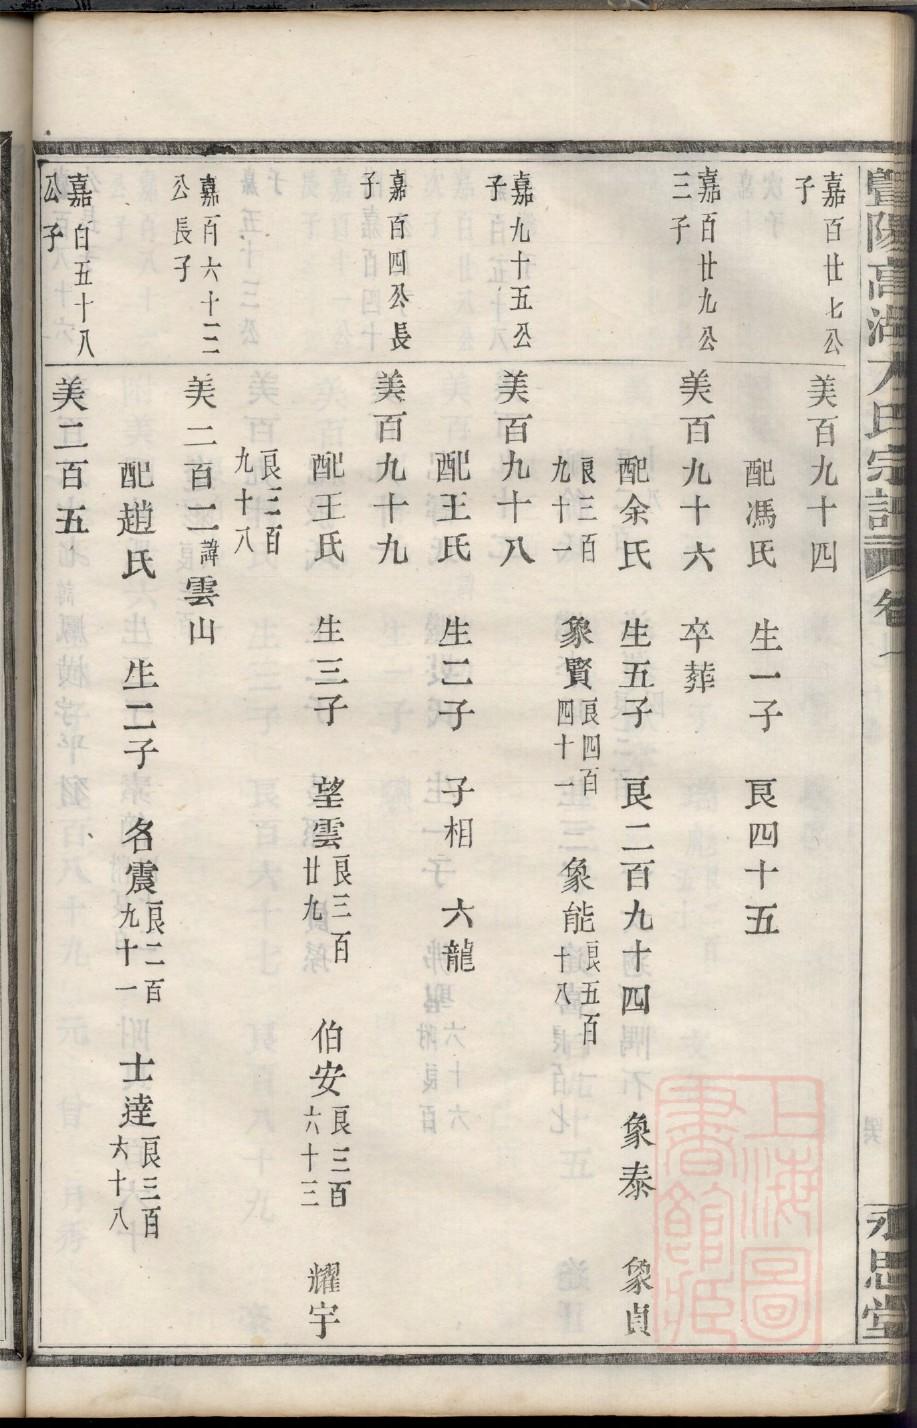 暨陽高湖 氏宗譜 卷
永思堂
嘉百廿七公
子
美百九十四
配馮氏 生一子 艮四十五
嘉百廿九公
三子
美百九十六 卒葬
配余氏 生五子 艮二百九十四 象泰 象貞
艮三百
九十一
象賢艮四百
四十一
象能艮五百
十八
嘉九十五公
子
美百九十八
配王氏 生二子 子相 六龍
嘉百四公長
子
美百九十九
配王氏 生三子 望雲艮三百
廿九
伯安艮三百
六十三
耀宇
艮三百
九十八
嘉百六十二
公長子
美二百二諱雲山
配趙氏 生二子 名震艮二百
九十一
士達艮三百
六十八
嘉百五十八
公子
美二百五
上海圖書館藏